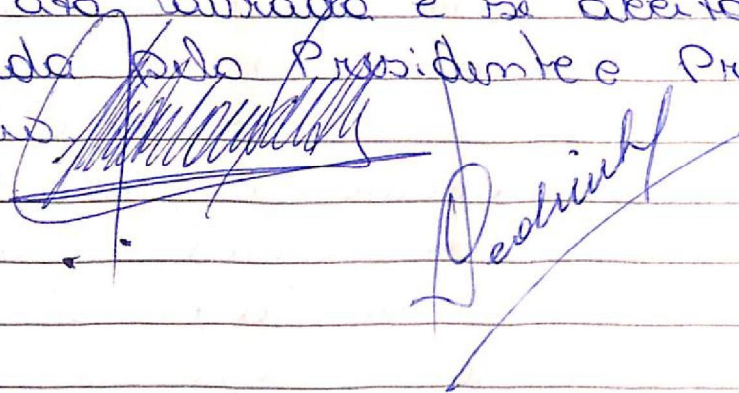 ata lavrada e se aceita
da pelo Presidente e Pr
io.
Pedrinho